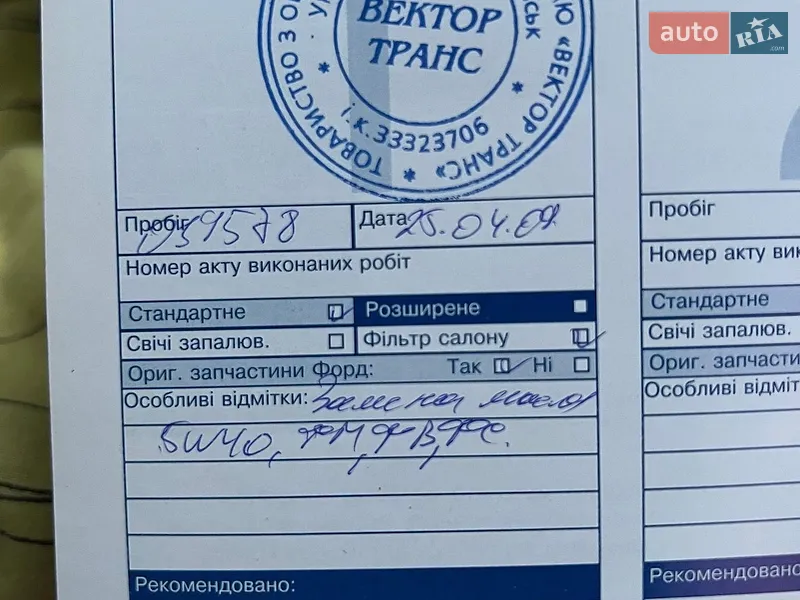 auto RIA.com
ВЕКТОР
ТРАНС
ТОВАРИСТВО З О
Ю «ВЕКТОР ТРАНС»
і.к.33323706
Пробіг 039578
Дата 25.04.09
Номер акту виконаних робіт
Стандартне
Розширене
Свічі запалюв.
Фільтр салону
Ориг. запчастини Форд: Так Ні
Особливі відмітки: Замена масла
5W40, ФМ, ФВ, ФС.
Рекомендовано:
Пробіг
Номер акту вик
Стандартне
Свічі запалюв.
Ориг. запчасти
Особливі відміт
Рекомендовано